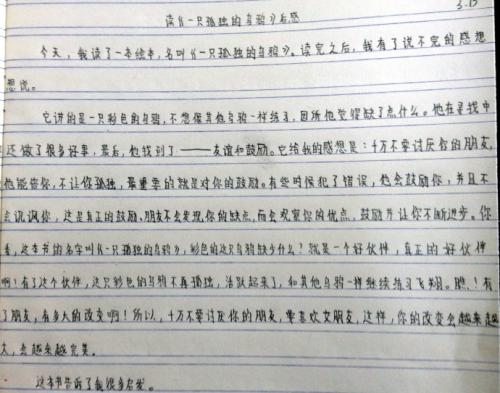 读《一只孤独的乌鸦》有感
3.15
今天，我读了一本绘本，名叫《一只孤独的乌鸦》。读完之后，我有了说不完的感想
想说。
它讲的是一只彩色的乌鸦，不想像其他乌鸦一样练习，因所他觉得缺了点什么。他在寻找中
还做了很多好事，最后，他找到了——友谊和鼓励。它给我的感想是：千万不要讨厌你的朋友，
他能陪你，不让你孤独，最重要的就是对你的鼓励。有些时候犯了错误，他会鼓励你，并且不
会讽讽你，这是真正的鼓励。朋友不会发现你的缺点，而会观察你的优点，鼓励并让你不断进步。你
看，这本书的名字叫《一只孤独的乌鸦》，彩色的这只乌鸦缺少什么？就是一个好伙伴，真正的好伙伴
啊！有了这个伙伴，这只彩色的乌鸦不再孤独，活跃起来了，和其他乌鸦一样继续练习飞翔。瞧！有
了朋友，有多大的改变啊！所以，千万不要讨厌你的朋友，要喜欢朋友，这样，你的改变会越来越
大，会越来越完美。
这本书告诉了我很多启发。